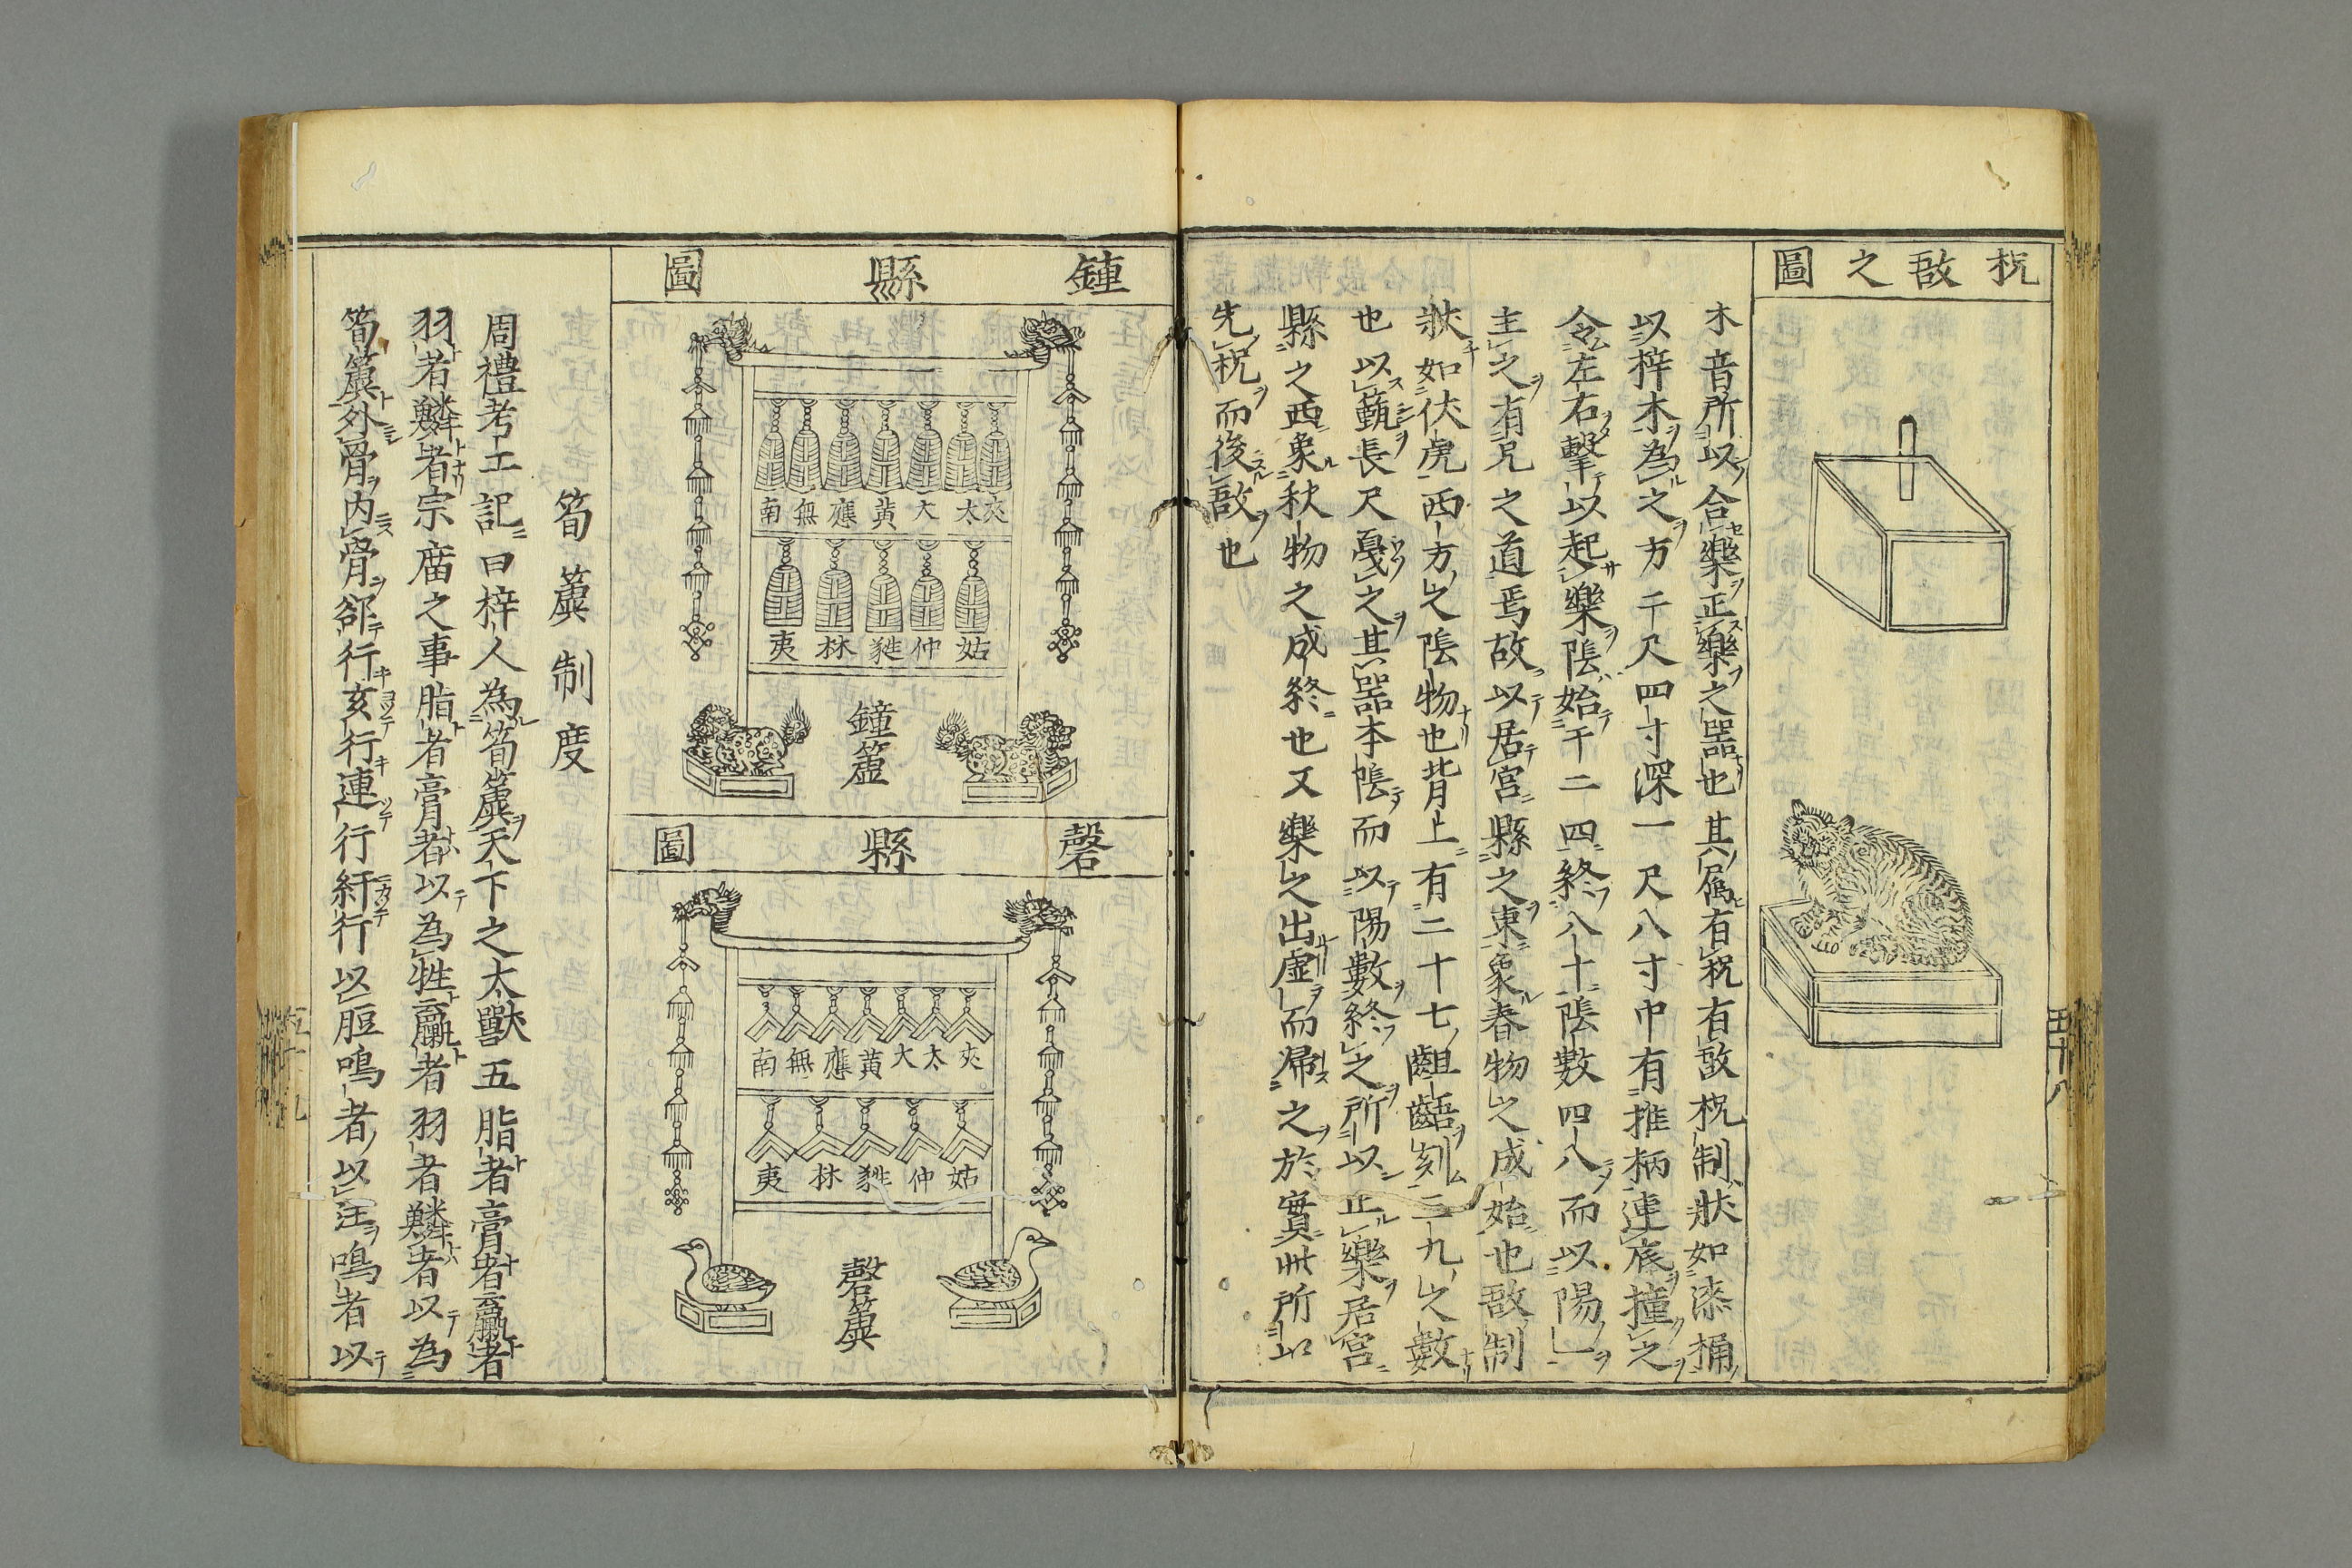 柷敔之圖
木音所以合樂正樂之器也其屬有柷有敔柷制狀如漆桶
以梓木為之方二尺四寸深一尺八寸中有推柄連底撞之
令左右擊以起樂陰始于二四終八十陰數四八而以陽一
主之有兄之道焉故以居宮縣之東象春物之成始也敔制
狀如伏虎西方之陰物也背上有二十七齟齬刻三九之數
也以甄長尺戛之其器本陰而以陽數終之所以止樂居宮
縣之西象秋物之成終也又樂之出虛而歸之於實此所以
先柷而後敔也
五十八
鍾縣圖
南無應黃大太夾
夷林蕤仲姑
鐘簴
磬縣圖
南無應黃大太夾
夷林蕤仲姑
磬簴
筍簴制度
周禮考工記曰梓人為筍簴天下之大獸五脂者膏者臝者
羽者鱗者宗廟之事脂者膏者以為牲臝者羽者鱗者以為
筍簴外骨內骨郤行亥行連行紆行以脰鳴者以注鳴者以